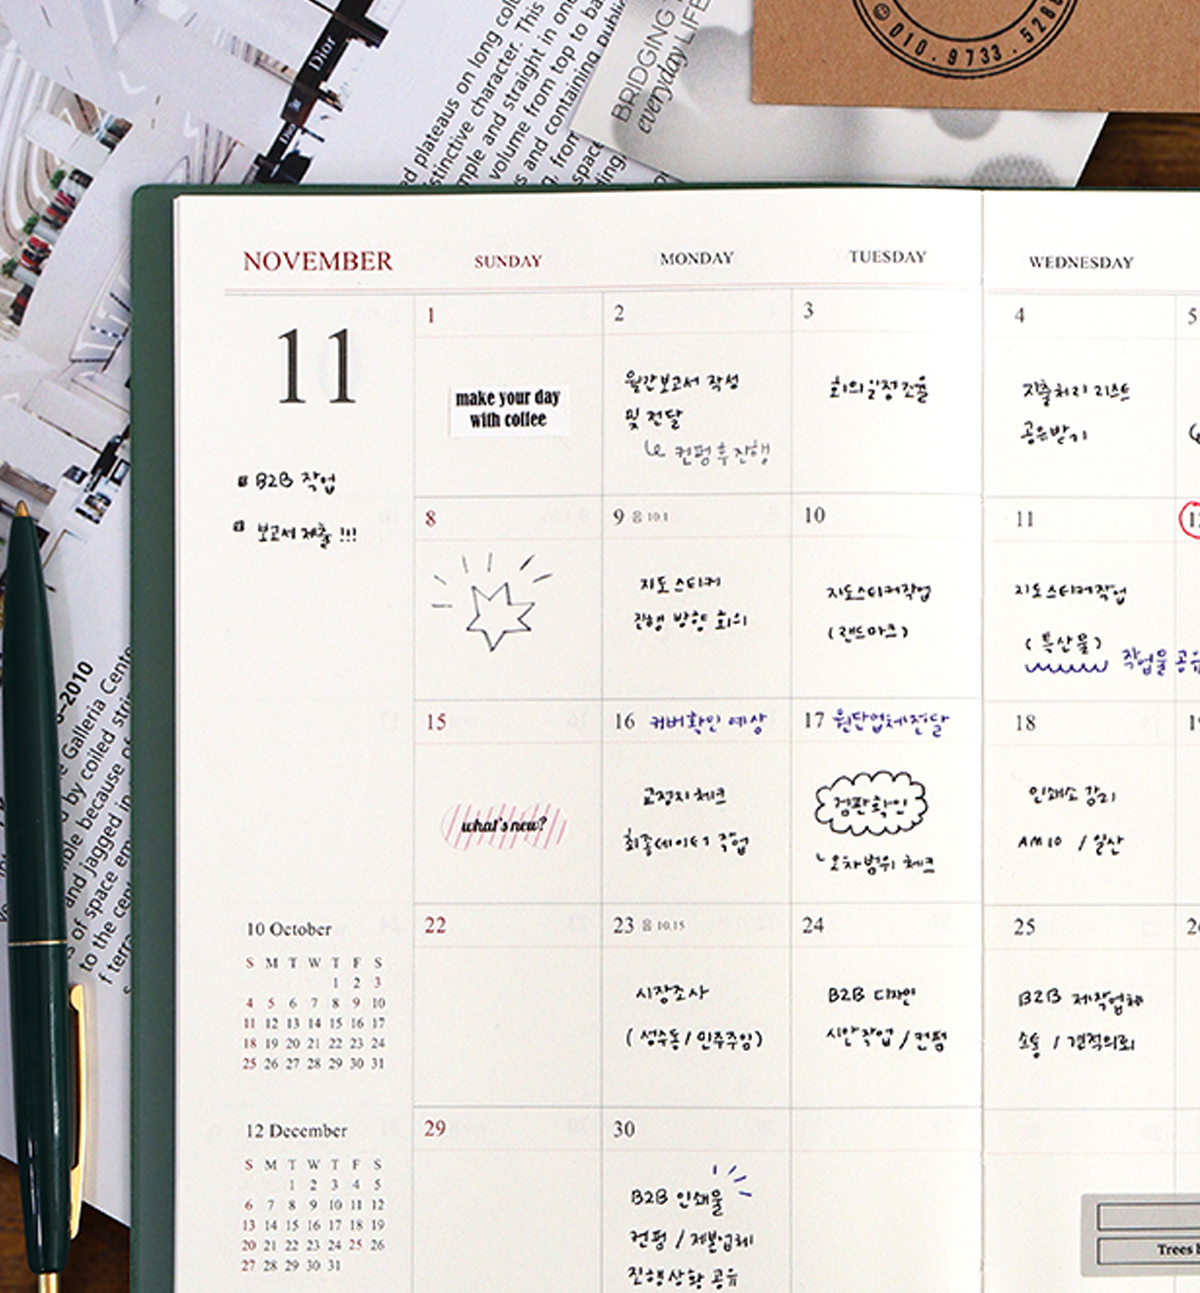 Dior
Dior
d plateaus on long
stinctive character. This
mple and straight in one
volume from top to ba
s and containing public
, from
space
ding,
BRIDGING
everyday LIFE
010.9733.528
NOVEMBER
SUNDAY
MONDAY
TUESDAY
WEDNESDAY
11
B2B 작업
보고서 제출 !!!
1
make your day
with coffee
2
월간보고서 작성
및 전달
컨펌 후 진행
3
회의 일정 조율
4
지출처리 리스트
공유받기
5
8
9 음 10.1
지도 스티커
진행 방향 회의
10
지도스티커작업
(랜드마크)
11
지도스티커작업
(특산물)
작업물 공유
15
what's new?
16 커버확인 예상
교정지 체크
최종데이터 작업
17 원단업체전달
검판확인
오차범위 체크
18
인쇄소 감리
AM10 / 일산
22
23 음 10.15
시장조사
(성수동/민주주임)
24
B2B 디자인
시안작업 / 컨펌
25
B2B 제작업체
소통 / 견적의뢰
29
30
B2B 인쇄물
컨펌 / 제본업체
진행상황 공유
10 October
S M T W T F S
1 2 3
4 5 6 7 8 9 10
11 12 13 14 15 16 17
18 19 20 21 22 23 24
25 26 27 28 29 30 31
12 December
S M T W T F S
1 2 3 4 5
6 7 8 9 10 11 12
13 14 15 16 17 18 19
20 21 22 23 24 25 26
27 28 29 30 31
Trees
-2010
e Galleria Cente
d by coiled strip
ible because of
and jagged in
s of space em
to the cent
f terra